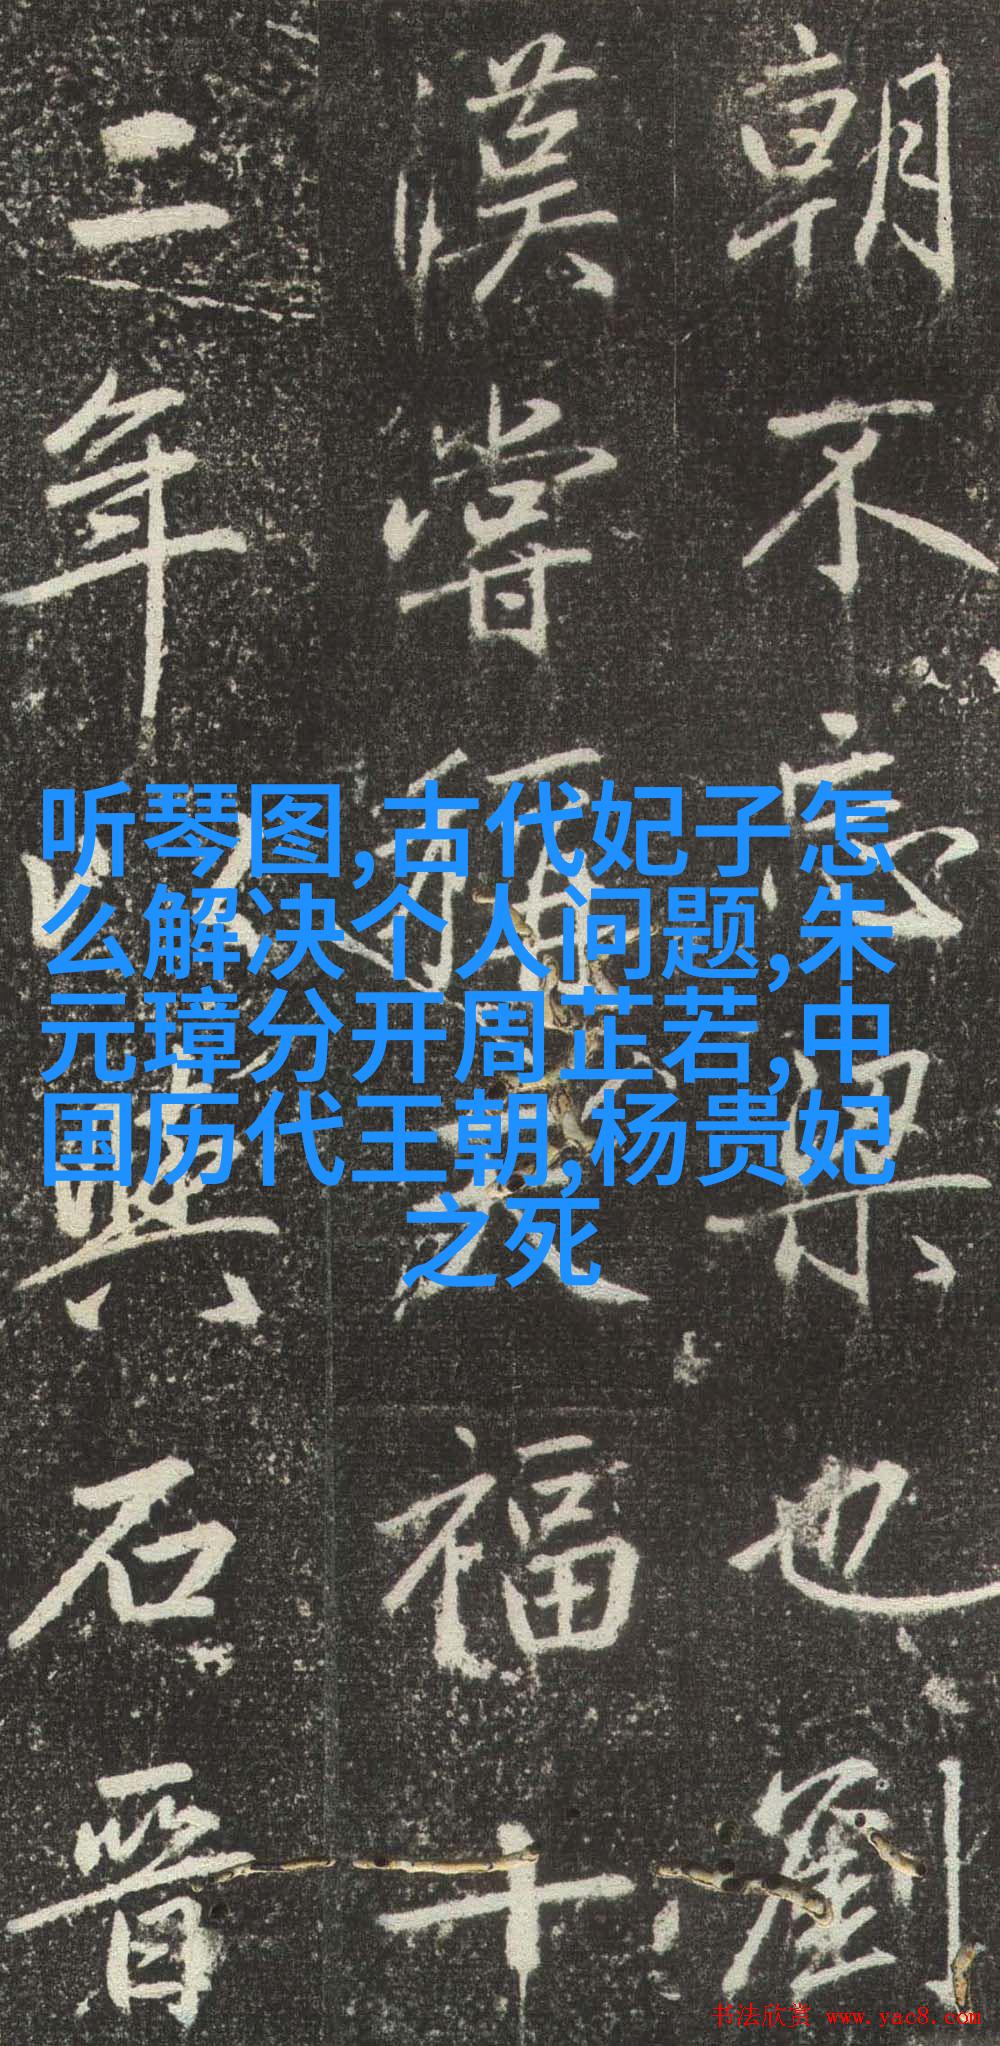 朝不忘梁也劉
漢嘗稱天福十
二年以石晉
听琴图,古代妃子怎
么解决个人问题,朱
元璋分开周芷若,中
国历代王朝,杨贵妃
之死
书法欣赏 www.yac8.com